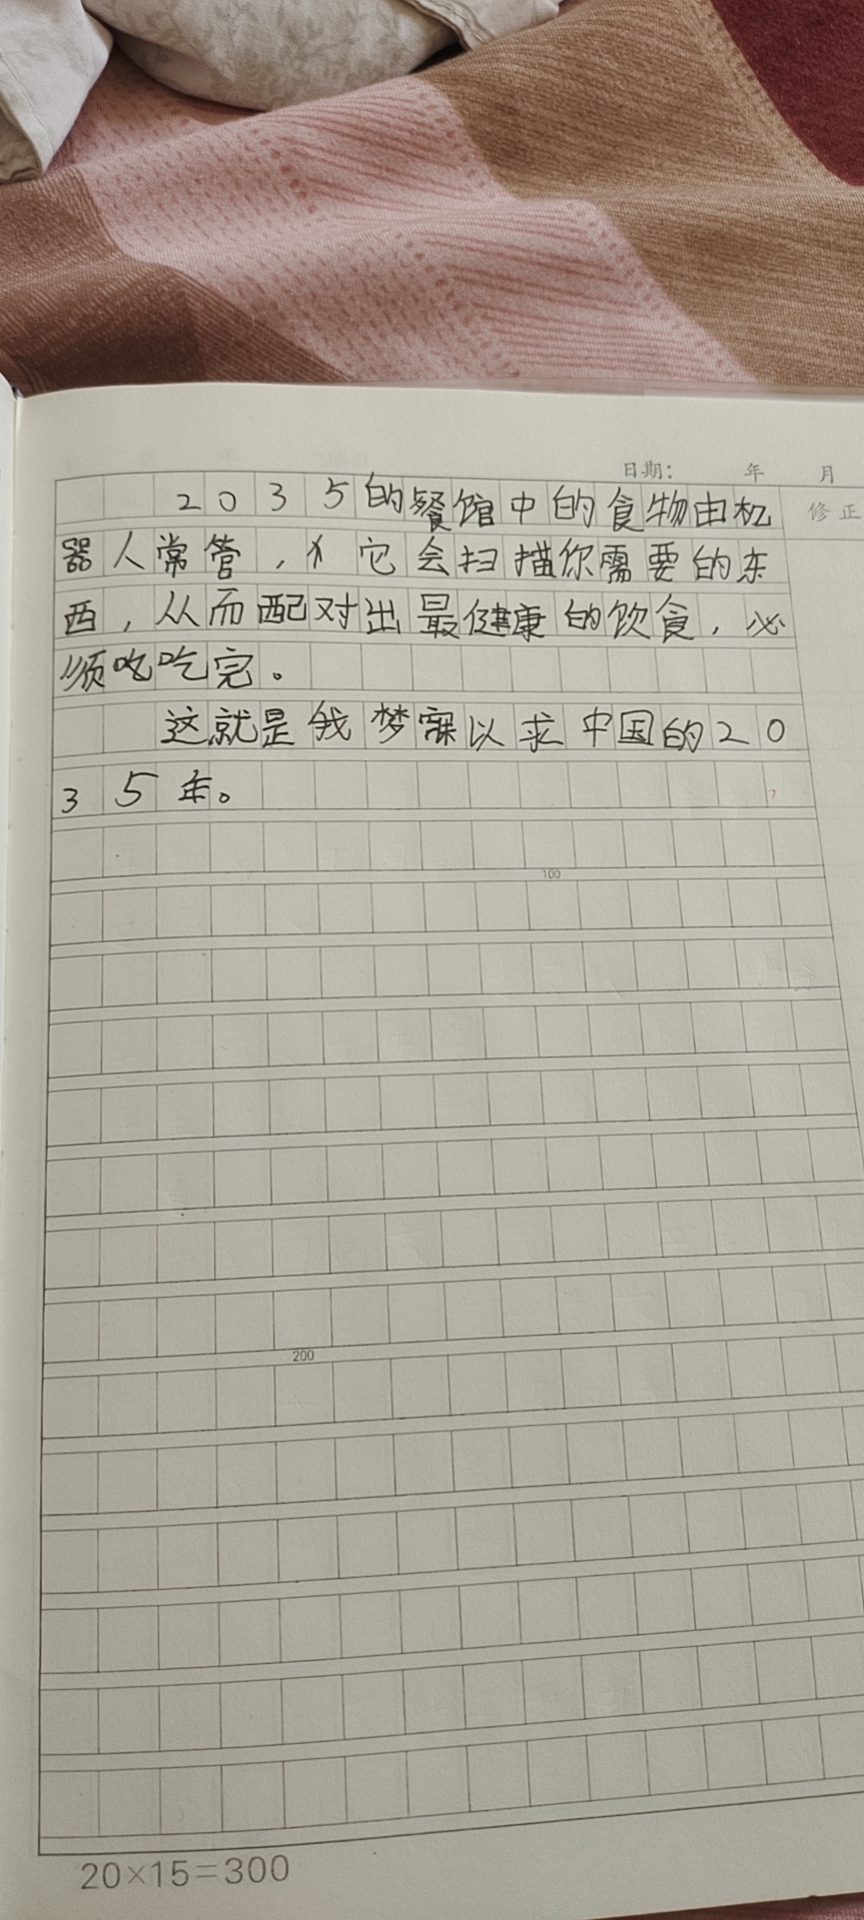 日期: 年 月
修正
2035的餐馆中的食物由机
器人常管,它会扫描你需要的东
西,从而配对出最健康的饮食,必
须吃吃完。
这就是我梦寐以求中国的20
35年。
100
200
20×15=300